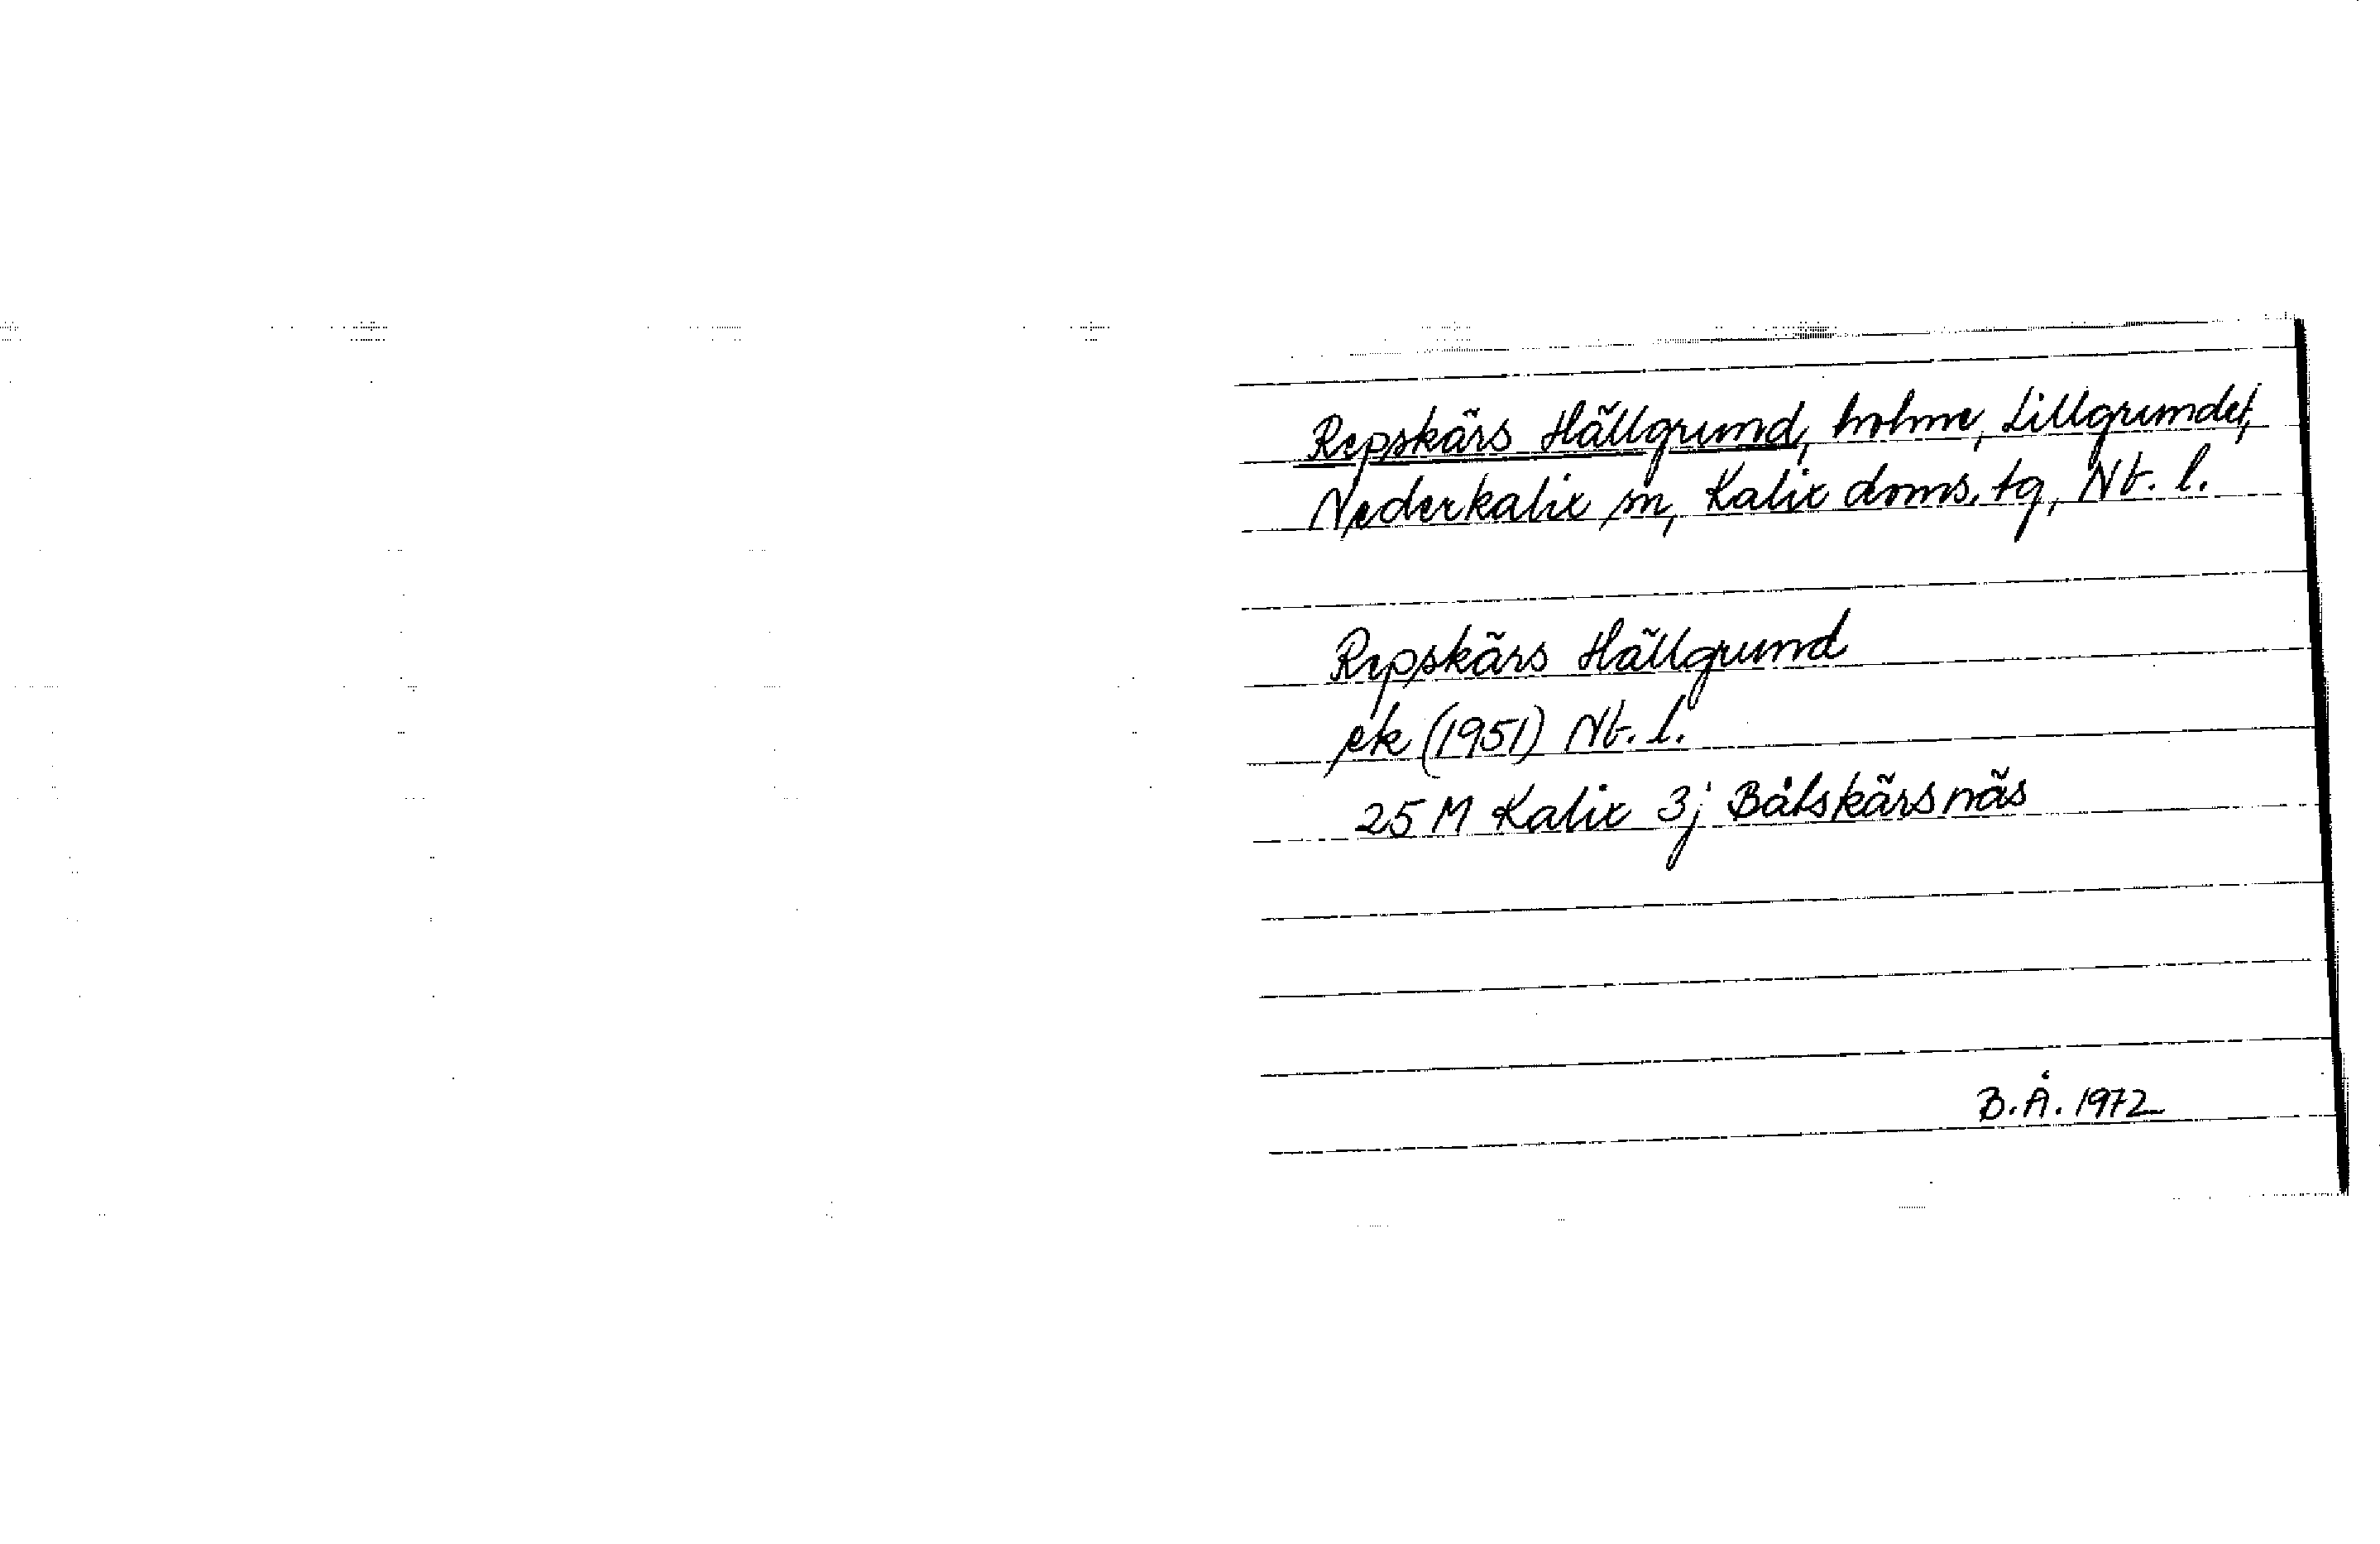 Repskärs Hällgrund, holme, Lillgrundet,
Nederkalix sn, Kalix doms. tg, Nb. l.
Repskärs Hällgrund
ek (1951) Nb. l.
25 M Kalix 3j Båtskärsnäs
B.Å. 1972